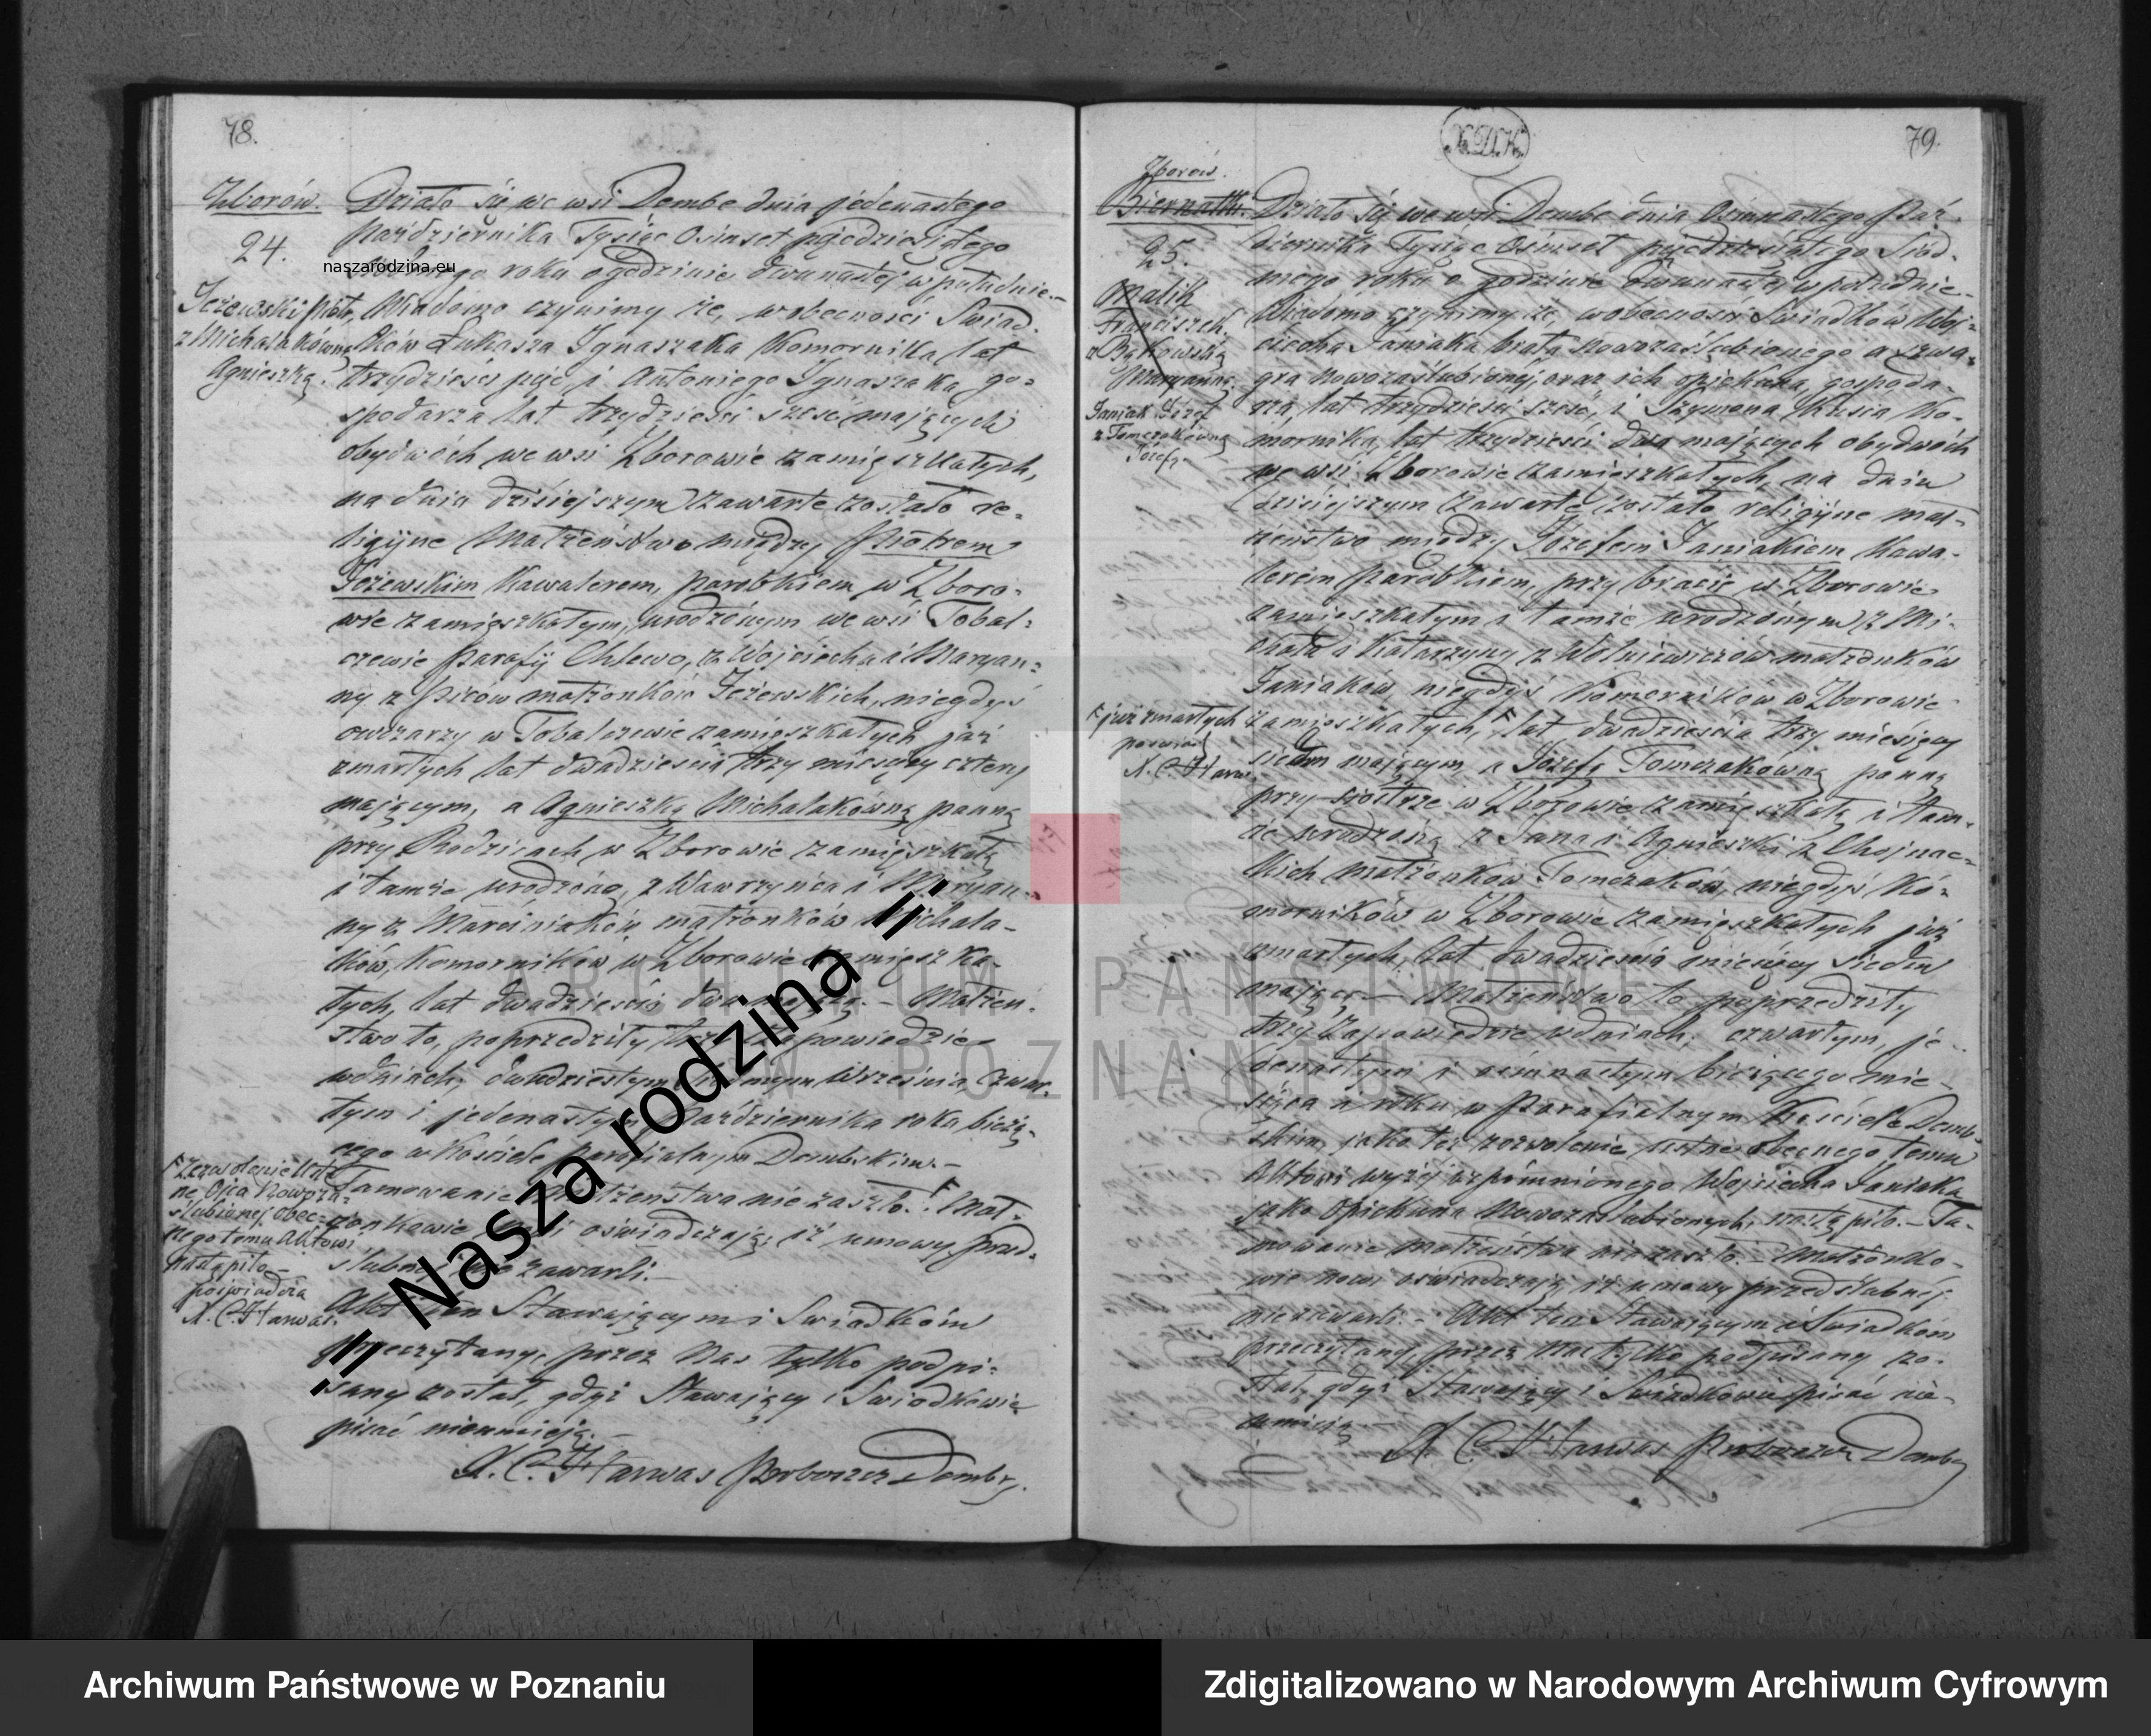 78.
Zborów.
24.
Jeżewski Piotr,
z Michalakówną
Agnieszką.
Działo się we wsi Dembe dnia jedenastego
Października Tysiąc Ośmset pięćdziesiątego
roku o godzinie dwunastej w południe.–
Wiadomo czynimy że, w obecności Świad-
ków Łukasza Ignaszaka Komornika, lat
trzydzieści pięć, i Antoniego Ignaszaka, go-
spodarza lat trzydzieści sześć mających
obydwóch we wsi Zborowie zamięszkałych,
na dniu dzisiejszym zawarte zostało re-
ligijne Małżeństwo między Piotrem
Jeżewskim Kawalerem, parobkiem w Zboro-
wie zamięszkałym, urodzonym we wsi Tobal-
czewie Parafij Chlewo, z Wojciecha i Maryan-
ny z małżonków Jeżewskich, niegdyś
owczarzy w Tobalczewie zamięszkałych już
zmarłych lat dwadzieścia trzy miesięcy cztery
mającym, a Agnieszką Michalakówną panną
przy Rodzicach w Zborowie zamięszkałą
i tamże urodzoną, z Wawrzyńca i Maryan-
ny z Marciniaków małżonków Michala-
ków, Komorników w Zborowie zamięszka-
łych, lat dwadzieścia dwa mającą.– Małżeń-
stwo to, poprzedziły trzy zapowiedzie
w dniach, dwudziestym siódmym Września, czwar-
tym i jedenastym Października roku bieżą-
cego w Kościele parafialnym Dembskim.–
Tamowanie Małżeństwa nie zaszło. F. Mał-
żonkowie nowi oświadczają, iż umowy przed-
ślubnej nie zawarli.–
Akt ten Stawającym i Świadkom
przeczytany, przez Nas tylko podpi-
sany został, gdyż Stawający i Świadkowie
pisać nieumieją.–
X. C. Harwas Proboszcz Dembs.
F Zezwolenie ust-
ne Ojca Nowoza-
ślubionej obec-
nego temu Aktowi
nastąpiło–
poświadcza
X. C. Harwas.
79.
X.D.K.
Zborów.
Biernatki.
25.
Malik
Franciszek
z Bąkowską
Maryanną.
Janiak Józef
z Tomczakówną
Józefą.
Działo się we wsi Dembe dnia Osiemnastego Paź-
dziernika Tysiąc Ośmset pięćdziesiątego Siód-
mego roku o godzinie dwunastej w południe.
Wiadomo czynimy że, w obecności Świadków Woj-
ciecha Janiaka brata nowozaślubionego a szwa-
gra nowozaślubionej, oraz ich opiekuna, gospoda-
rza, lat trzydzieści sześć, i Szymona Kusia Ko-
mornika, lat trzydzieści dwa mających obydwóch
we wsi Zborowie zamieszkałych, na dniu
dzisiejszym zawarte zostało religijne mał-
żeństwo między Józefem Janiakiem Kawa-
lerem parobkiem, przy bracie w Zborowie
zamieszkałym i tamże urodzonym z Mi-
chała i Katarzyny z Wolniewiczów małżonków
Janiaków, niegdyś Komorników w Zborowie
zamięszkałych, F lat dwadzieścia trzy miesięcy
siedm mającym, a Józefą Tomczakówną panną
przy siostrze w Zborowie zamięszkałą i tam-
że urodzoną z Jana i Agnieszki z Chojnac-
kich małżonków Tomczaków, niegdyś Ko-
morników w Zborowie zamięszkałych już
zmarłych, lat dwadzieścia miesięcy siedm
mającą.– Małżeństwo to poprzedziły
trzy Zapowiedzie w dniach, czwartym, je-
denastym i ośmnastym bieżącego mie-
siąca w roku w Parafialnym Kościele Demb-
skim, jako też zezwolenie ustne obecnego temu
Aktowi wyżej wspomnionego Wojciecha Janiaka
jako Opiekuna Nowozaślubionych, nastąpiło.– Ta-
mowanie małżeństwa nie zaszło.– Małżonko-
wie nowi oświadczają, iż umowy przedślubnej
nie zawarli.– Akt ten Stawającym i Świadkom
przeczytany, przez Nas tylko podpisany zo-
stał, gdyż Stawający i Świadkowie pisać nie-
umieją.–
X. C. Harwas Proboszcz Dembs
F już zmarłych
poświad.
X. C. Harw.
naszarodzina.eu
!! Nasza rodzina !!
ARCHIWUM PAŃSTWOWE
W POZNANIU
Archiwum Państwowe w Poznaniu
Zdigitalizowano w Narodowym Archiwum Cyfrowym